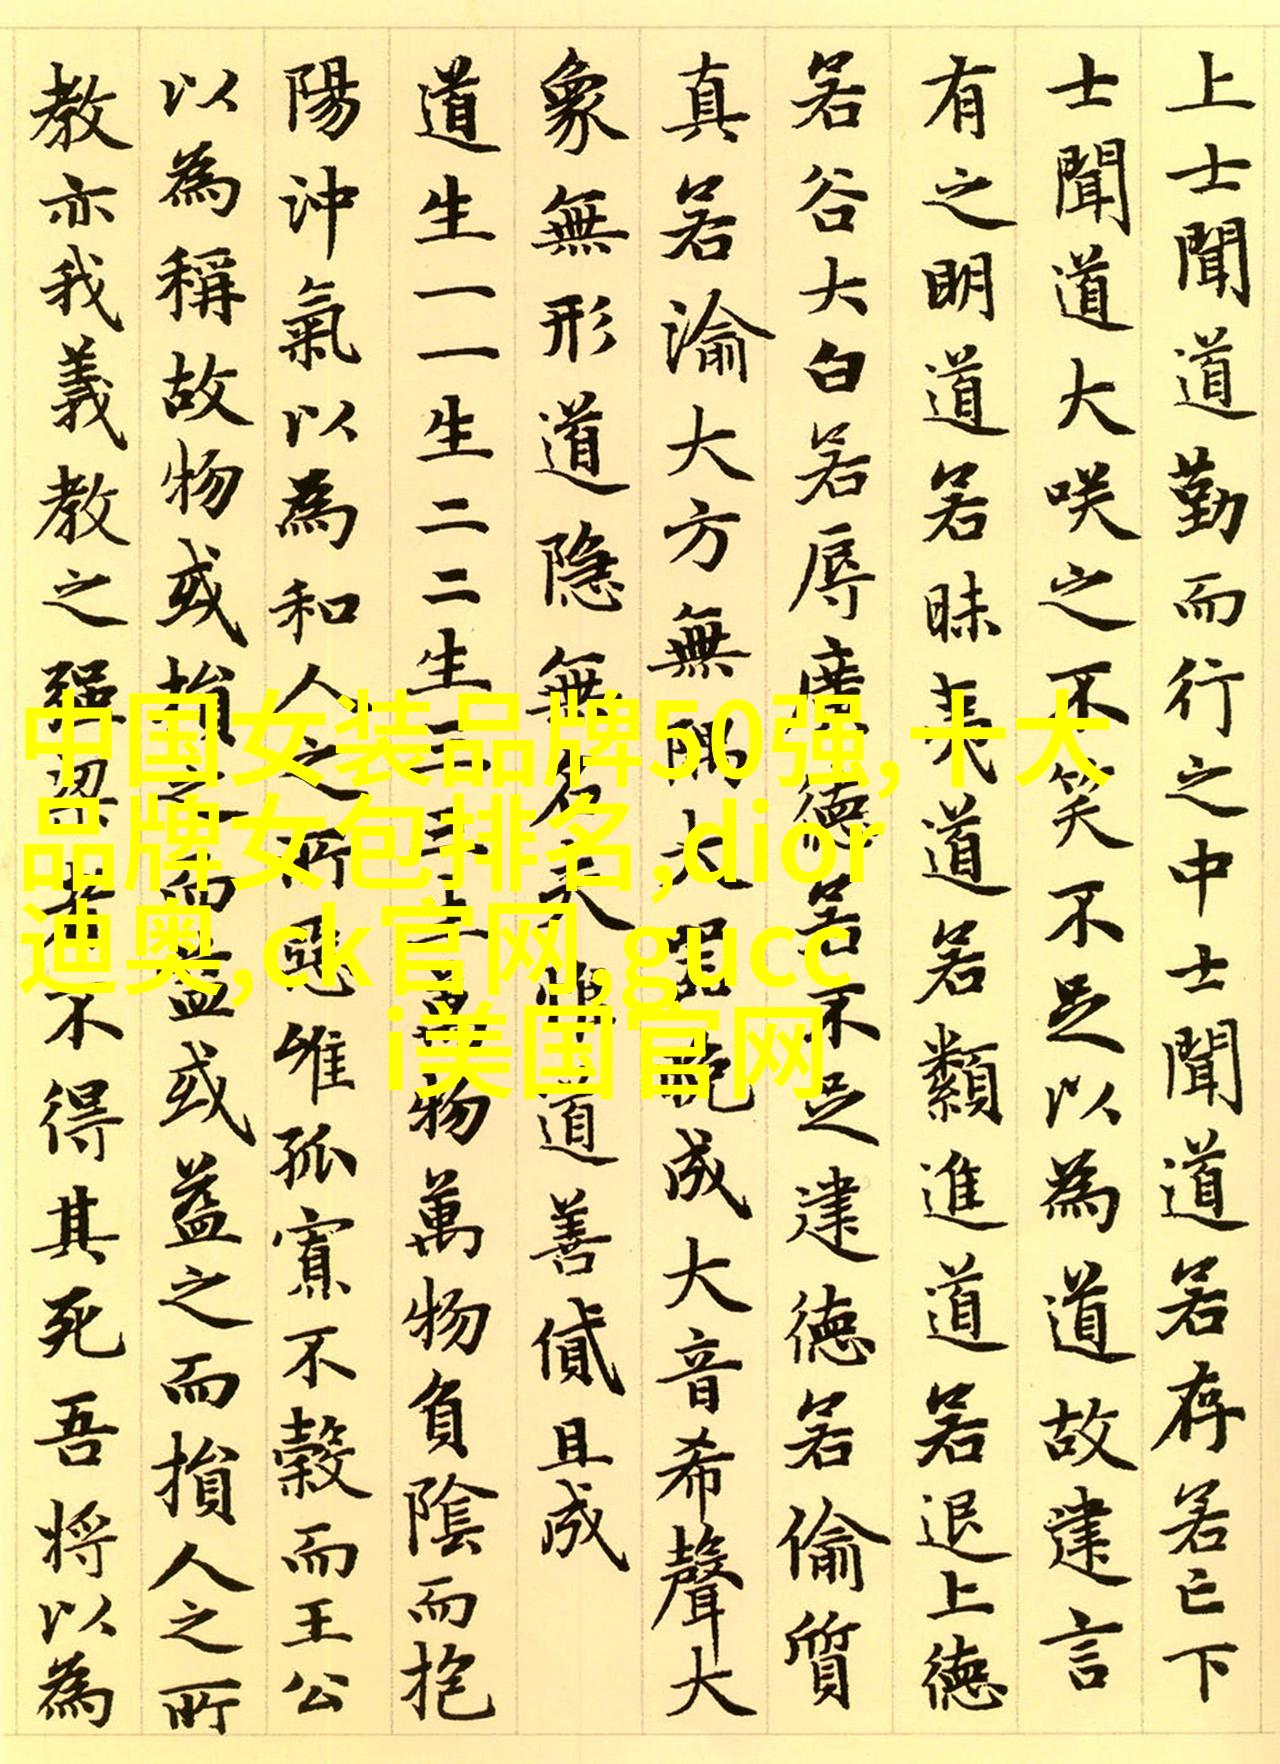 上士聞道勤而行之中士聞道若存若亡下
士聞道大咲之不笑不足以為道故建言
有之明道若昧夷道若纇進道若退上德
若谷大白若辱廣德若不足建德若偷質
真若渝大方無隅大器晚成大音希聲大
象無形道隐無名夫惟道善貸且成
道生一一生二二生三三生萬物萬物負陰而抱
陽沖氣以為和人之所惡唯孤寡不穀而王公
以為稱故物或損之而益或益之而損人之所
教亦我義教之強梁者不得其死吾将以為
中国女装品牌50强,十大
品牌女包排名,dior
迪奥,ck官网,gucc
i美国官网